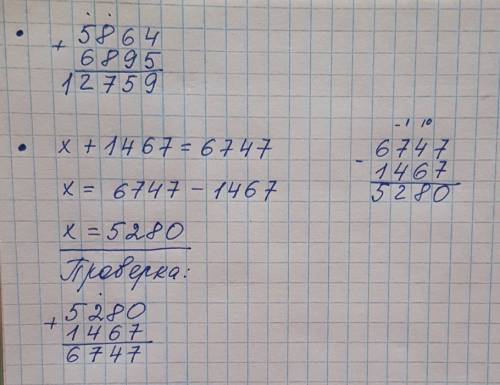 • 5864
+ 6895
12759
• x + 1467 = 6747
x = 6747 - 1467
x = 5280
-1 10
6747
- 1467
5280
Проверка:
5280
+ 1467
6747